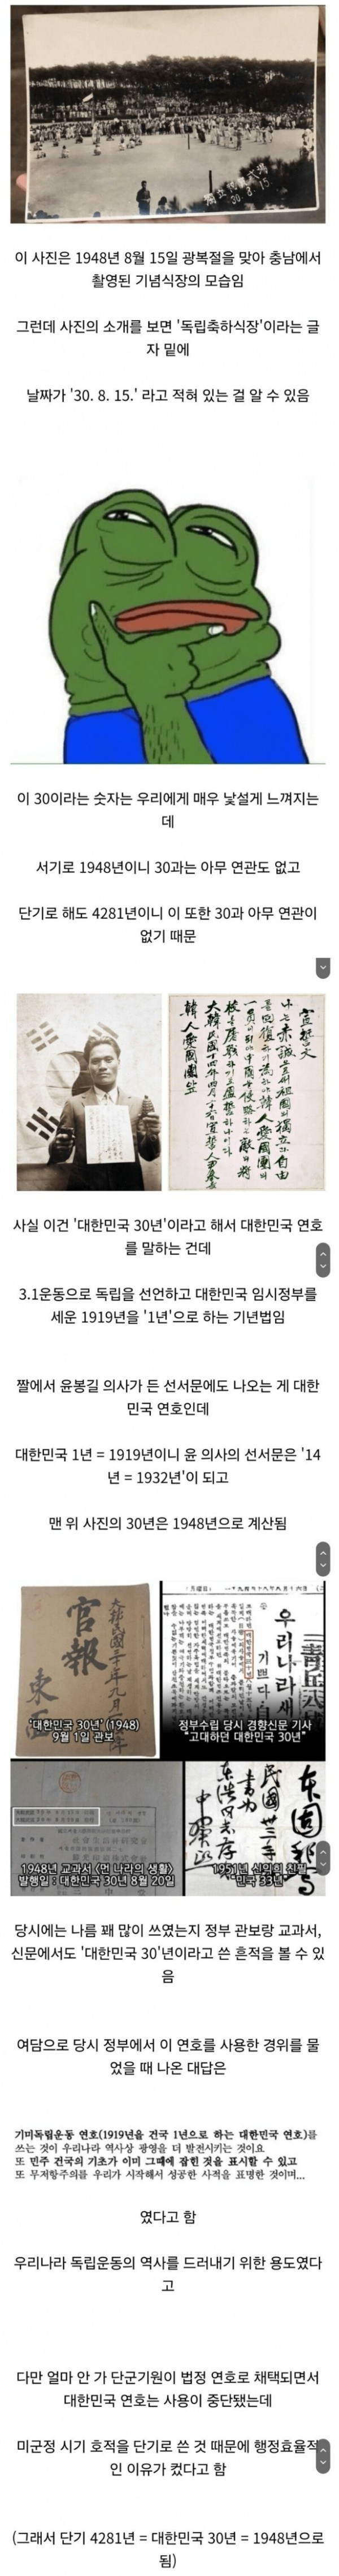 30. 8. 15.
이 사진은 1948년 8월 15일 광복절을 맞아 충남에서
촬영된 기념식장의 모습임
그런데 사진의 소개를 보면 '독립축하식장'이라는 글
자 밑에
날짜가 '30. 8. 15.' 라고 적혀 있는 걸 알 수 있음
이 30이라는 숫자는 우리에게 매우 낯설게 느껴지는
데
서기로 1948년이니 30과는 아무 연관도 없고
단기로 해도 4281년이니 이 또한 30과 아무 연관이
없기 때문
宣誓文
나는 赤誠으로써 祖國의 獨立과 自由
를 回復하기 爲하야 韓人愛國團의
一員이 되야 中國을 侵略하는 敵의 將
校를 屠戮하기로 盟誓하나이다
大韓民國十四年四月二六日
韓人愛國團앞
사실 이건 '대한민국 30년'이라고 해서 대한민국 연호
를 말하는 건데
3.1운동으로 독립을 선언하고 대한민국 임시정부를
세운 1919년을 '1년'으로 하는 기년법임
짤에서 윤봉길 의사가 든 선서문에도 나오는 게 대한
민국 연호인데
대한민국 1년 = 1919년이니 윤 의사의 선서문은 '14
년 = 1932년'이 되고
맨 위 사진의 30년은 1948년으로 계산됨
官報
'대한민국 30년' (1948)
9월 1일 관보
우리나라새
기쁘다
정부수립 당시 경향신문 기사
"고대하던 대한민국 30년"
1948년 교과서 <먼 나라의 생활>
발행일 : 대한민국 30년 8월 20일
民國卅三年
1951년 신익희 친필
"민국 33년"
당시에는 나름 꽤 많이 쓰였는지 정부 관보랑 교과서,
신문에서도 '대한민국 30'년이라고 쓴 흔적을 볼 수 있
음
여담으로 당시 정부에서 이 연호를 사용한 경위를 물
었을 때 나온 대답은
기미독립운동 연호(1919년을 건국 1년으로 하는 대한민국 연호)를
쓰는 것이 우리나라 역사상 광영을 더 발전시키는 것이요
또 민주 건국의 기초가 이미 그때에 잡힌 것을 표시할 수 있고
또 무저항주의를 우리가 시작해서 성공한 사적을 표명한 것이며...
였다고 함
우리나라 독립운동의 역사를 드러내기 위한 용도였다
고
다만 얼마 안 가 단군기원이 법정 연호로 채택되면서
대한민국 연호는 사용이 중단됐는데
미군정 시기 호적을 단기로 쓴 것 때문에 행정효율적
인 이유가 컸다고 함
(그래서 단기 4281년 = 대한민국 30년 = 1948년으로
됨)